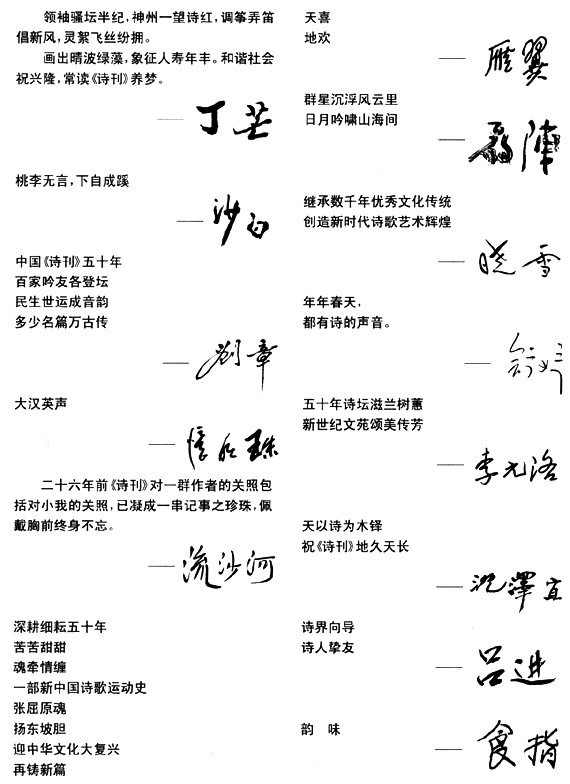 领袖骚坛半纪，神州一望诗红，调筝弄笛
倡新风，灵絮飞丝纷拥。
画出晴波绿藻，象征人寿年丰。和谐社会
祝兴隆，常读《诗刊》养梦。
——丁芒
桃李无言，下自成蹊
——沙白
中国《诗刊》五十年
百家吟友各登坛
民生世运成音韵
多少名篇万古传
——劉章
大汉英声
——
二十六年前《诗刊》对一群作者的关照包
括对小我的关照，已凝成一串记事之珍珠，佩
戴胸前终身不忘。
——流沙河
深耕细耘五十年
苦苦甜甜
魂牵情缠
一部新中国诗歌运动史
张屈原魂
扬东坡胆
迎中华文化大复兴
再铸新篇
天喜
地欢
——雁翼
群星沉浮风云里
日月吟啸山海间
——
继承数千年优秀文化传统
创造新时代诗歌艺术辉煌
——晓雪
年年春天，
都有诗的声音。
——舒婷
五十年诗坛滋兰树蕙
新世纪文苑颂美传芳
——李元洛
天以诗为木铎
祝《诗刊》地久天长
——沈澤宜
诗界向导
诗人挚友
——吕进
韵　味
——食指